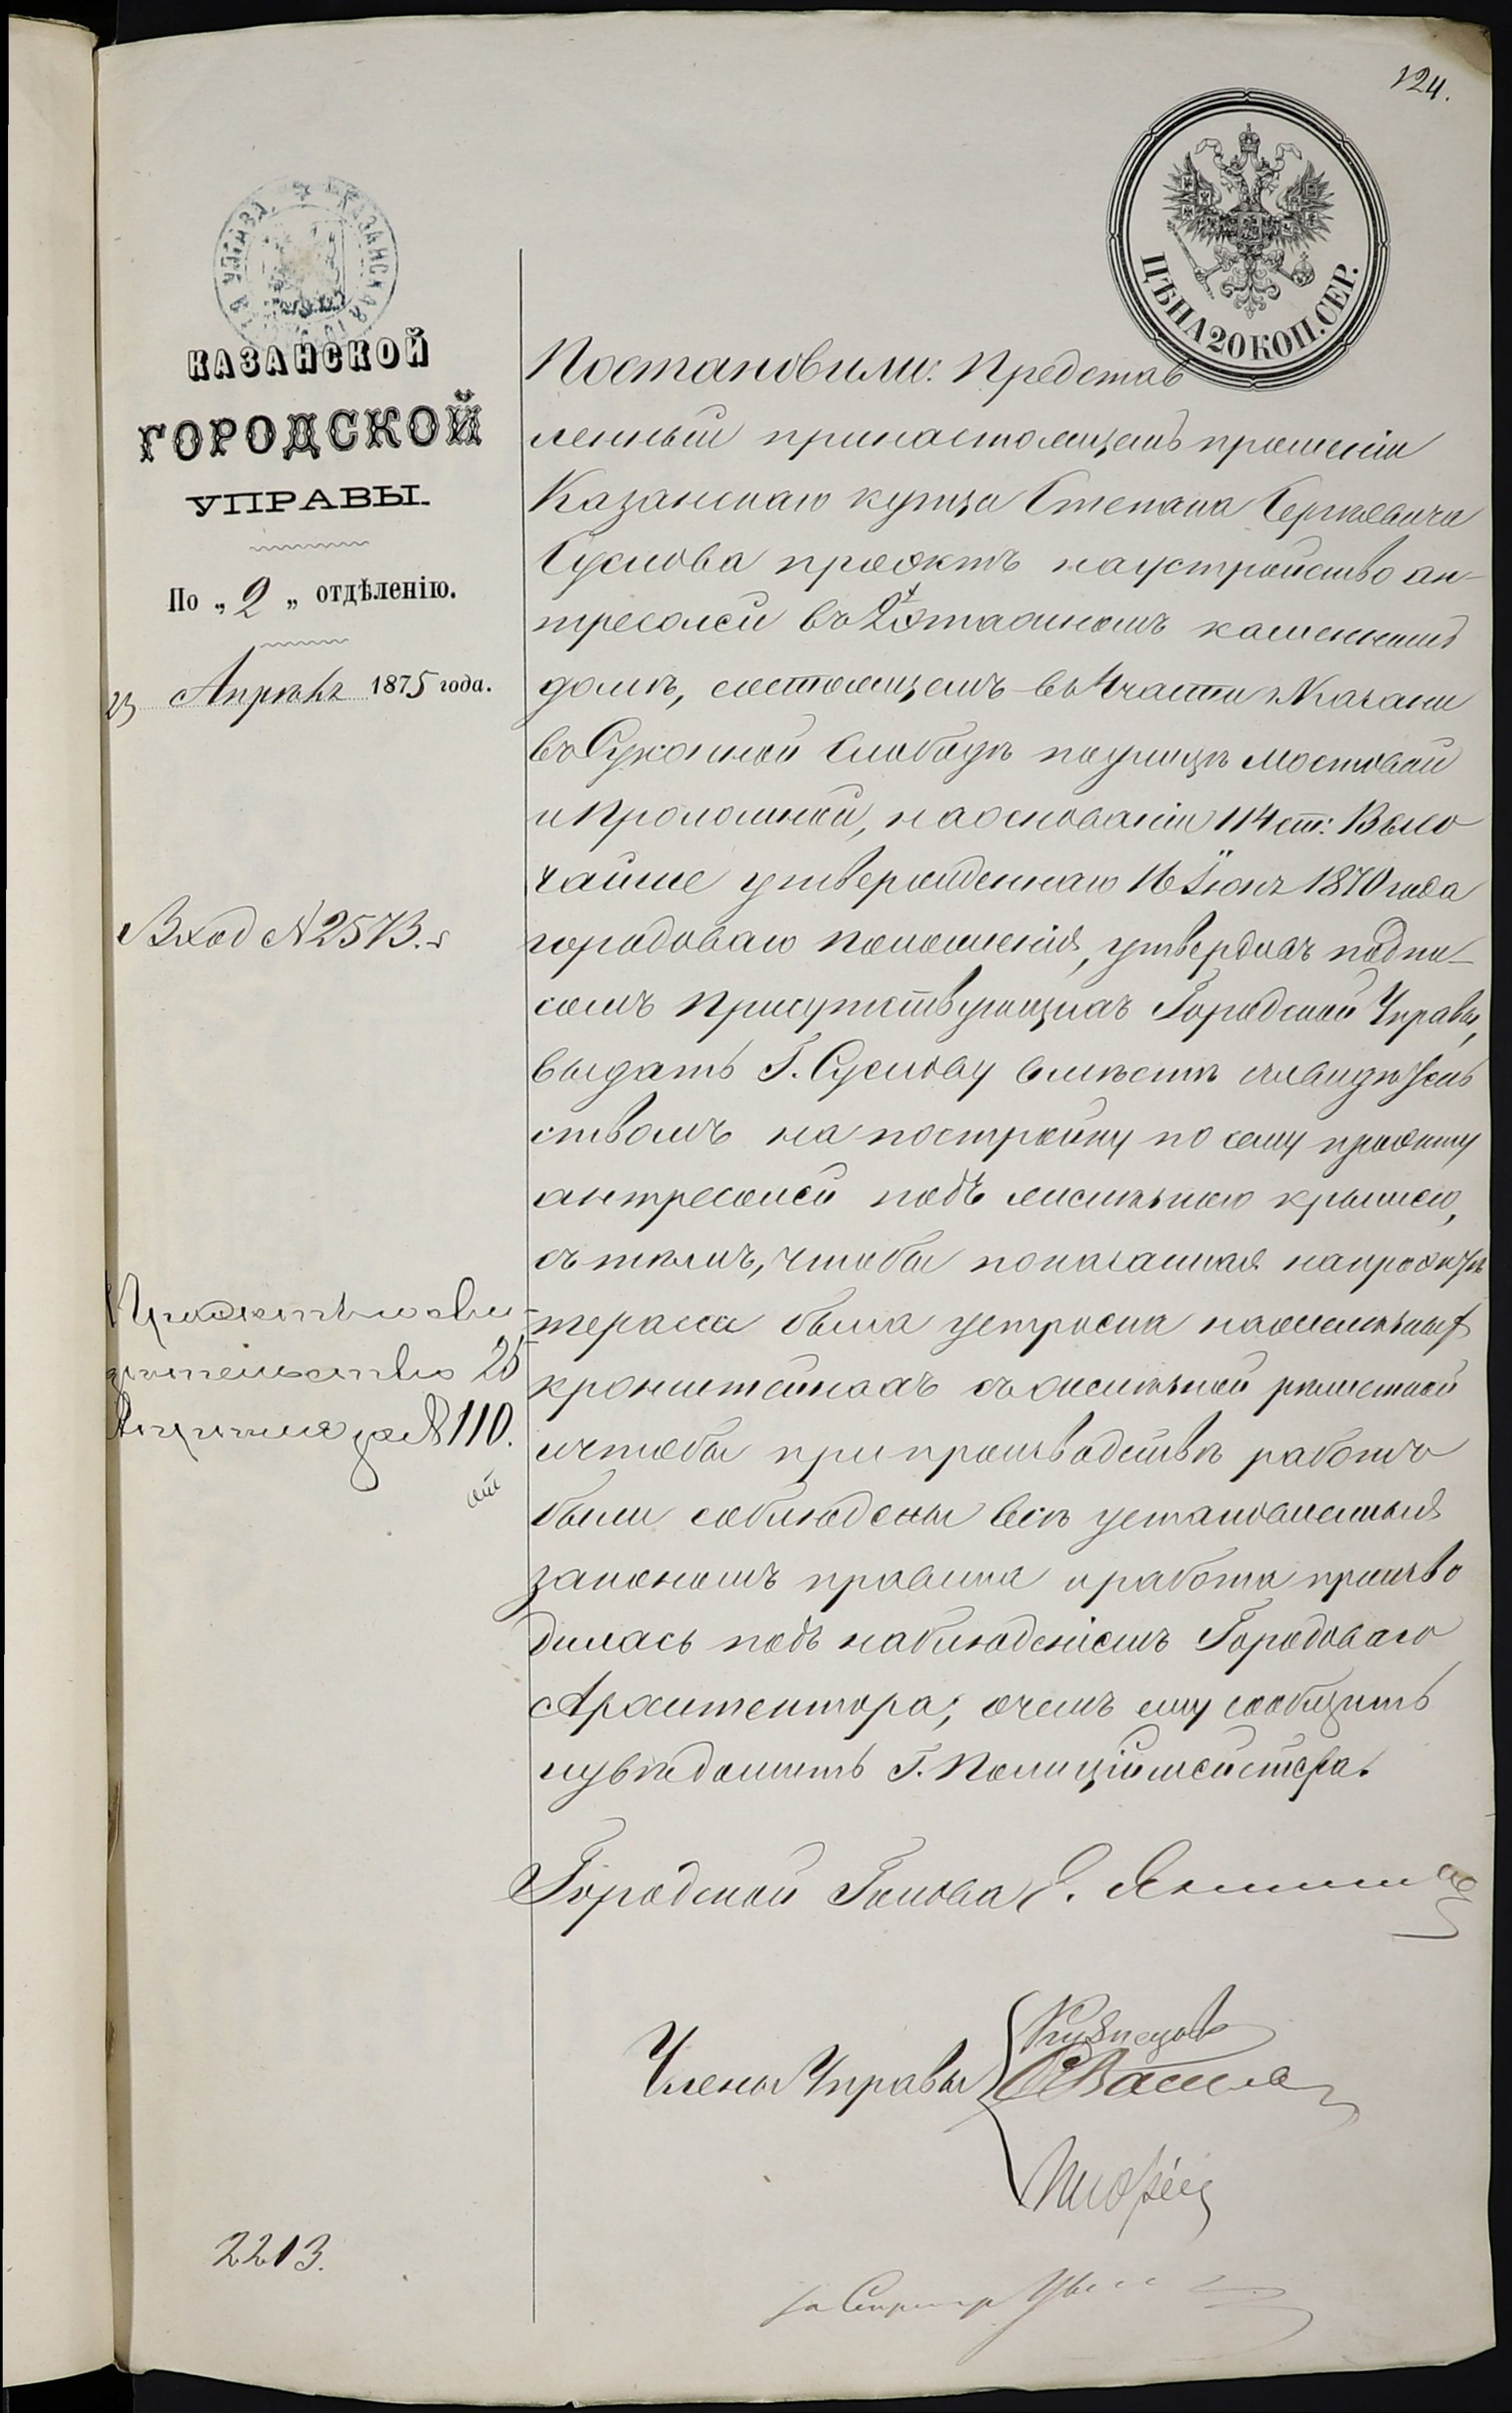 124.
КАЗАНСКАЯ УПРАВА
ЦѢНА 20 КОП. СЕР.
КАЗАНСКОЙ
ГОРОДСКОЙ
УПРАВЫ.
По „ 2 „ отдѣленію.
23 Апрѣля 1875 года.
Вход № 2573.
Проектъ и сви-
дѣтельство 25
Апреля за № 110.
2213.
Постановили: Представ
ленный принастоящемъ прошеніи
Казанскаго купца Степана Сергѣевича
Суслова проэктъ наустройство ан-
тресолей въ 2х этажномъ каменномъ
домѣ, состоящемъ въ 4 части г. Казани
въ Суконной Слободѣ поулицѣ Мостовой
и Проломной, наоснованіи 114 ст: Высо
чайше утвержденнаго 16 Іюня 1870 года
городоваго положенія, утвердивъ подпи-
сомъ присутствующихъ Городской Управы,
выдать Г. Суслову вмѣстѣ съ свидѣтель
ствомъ на постройку по сему проэкту
антресолей подъ желѣзною крышею,
съ тѣмъ, чтобы показанная напроэктѣ
терасса была устроена нажелѣзныхъ
кронштейнахъ съ желѣзной решеткой
ичтобы при производствѣ работъ
были соблюдены всѣ установленныя
закономъ правила и работа произво
дилась подъ наблюденіемъ Городоваго
Архитектора; очемъ ему сообщить
иувѣдомить Г. Полиціймейстера.
Городской Голова Е.
Члены Управы
Кузнецовъ
За Секретаря